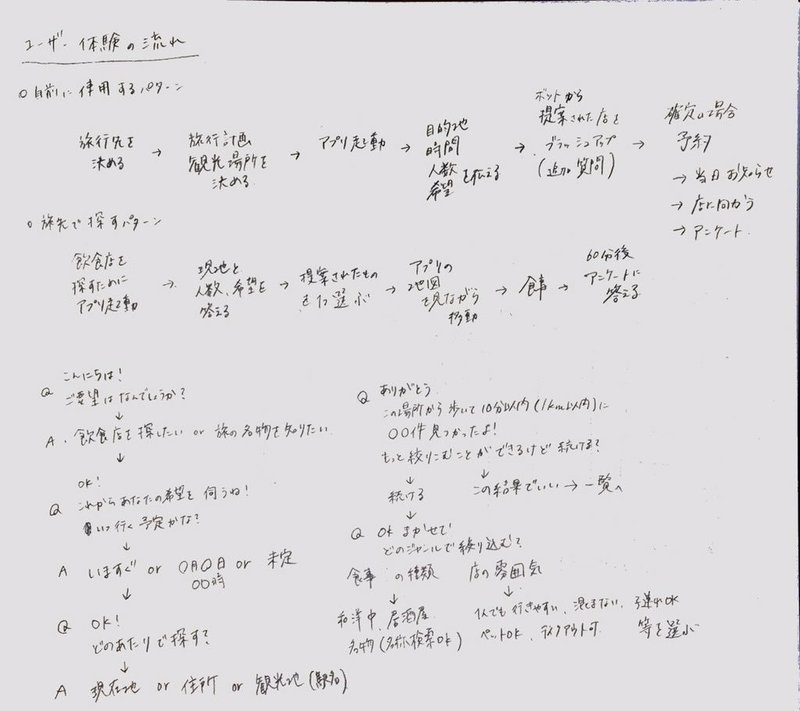 ユーザー体験の流れ
○ 自前に使用するパターン
旅行先を
決める
→
旅行計画
観光場所を
決める
→
アプリ起動
→
目的地
時間
人数
希望
を伝える
→
ボットから
提案された店を
ブラッシュアップ
(追加質問)
→
確定の場合
予約
→ 当日お知らせ
→ 店に向かう
→ アンケート
○ 旅先で探すパターン
飲食店を
探すために
アプリ起動
→
現地と
人数、希望を
答える
→
提案されたもの
を1つ選ぶ
→
アプリの
地図
を見ながら
移動
→
食事
→
60分後
アンケートに
答える
Q こんにちは!
ご要望はなんでしょうか?
↓
A. 飲食店を探したい or 旅の名物を知りたい
↓
Q OK!
これからあなたの希望を伺うね!
いつ行く予定かな?
↓
A いますぐ or 〇月〇日 or 未定
〇〇時
↓
Q OK!
どのあたりで探す?
↓
A 現在地 or 住所 or 観光地(駅名)
Q ありがとう
この場所から歩いて10分以内(1km以内)に
〇〇件見つかったよ!
もっと絞りこむことができるけど続ける?
↓ ↓
続ける この結果でいい → 一覧へ
↓
Q OK まかせて
どのジャンルで絞り込む?
食事の種類 店の雰囲気
↓ ↓
和洋中、居酒屋
名物(名称検索OK)
1人でも行きやすい、混まない、子連れOK
ペットOK、テイクアウト可 等を選ぶ